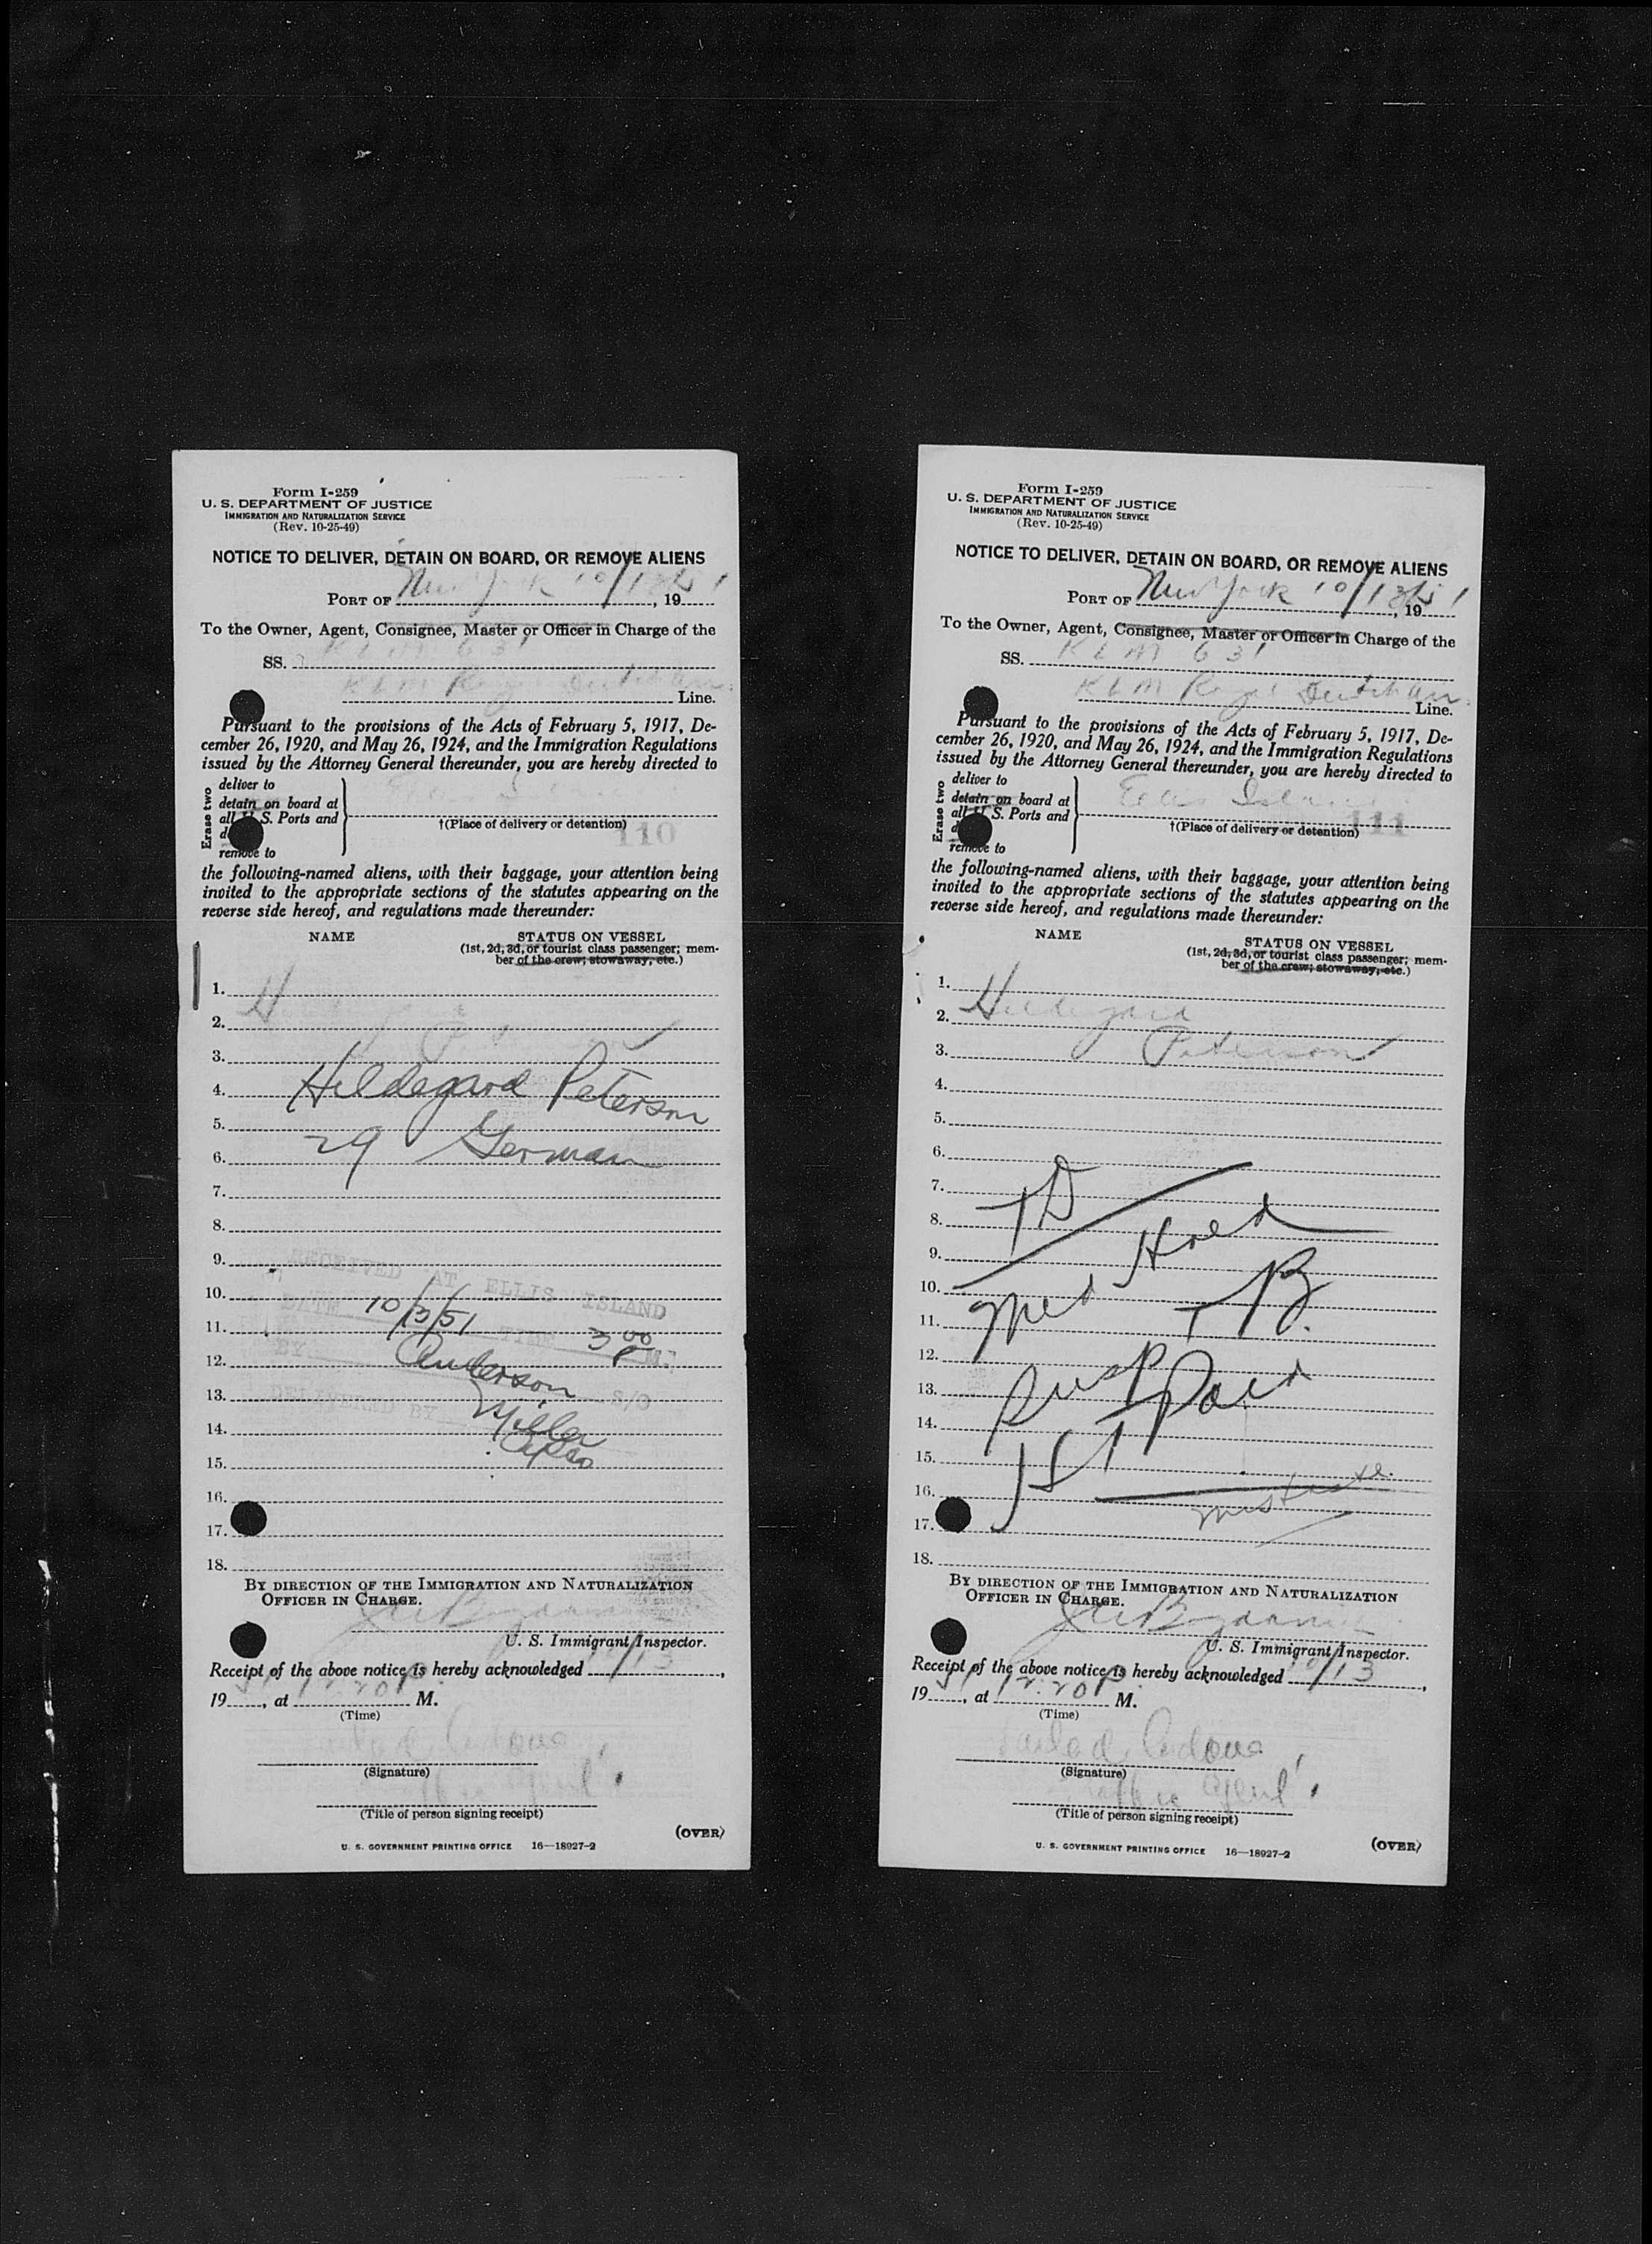 Form I-259
U. S. DEPARTMENT OF JUSTICE
IMMIGRATION AND NATURALIZATION SERVICE
(Rev. 10-25-49)
NOTICE TO DELIVER, DETAIN ON BOARD, OR REMOVE ALIENS
PORT OF New York 10/13/51, 19
To the Owner, Agent, Consignee, Master or Officer in Charge of the
SS. KLM 631
KLM Royal Dutch Line.
Pursuant to the provisions of the Acts of February 5, 1917, De-
cember 26, 1920, and May 26, 1924, and the Immigration Regulations
issued by the Attorney General thereunder, you are hereby directed to
Erase two
deliver to
detain on board at
all U. S. Ports and
remove to
†(Place of delivery or detention)
110
the following-named aliens, with their baggage, your attention being
invited to the appropriate sections of the statutes appearing on the
reverse side hereof, and regulations made thereunder:
NAME STATUS ON VESSEL
(1st, 2d, 3d, or tourist class passenger; mem-
ber of the crew; stowaway, etc.)
1.
2.
3.
4. Hildegard Peterson
5.
6. 29 German
7.
8.
9. RECEIVED AT ELLIS ISLAND
10.
11. DATE 10/13/51 TIME 3 00 P M.
12. BY Anderson
13. DELIVERED BY S/O
14. Miller
15.
16.
17.
18.
BY DIRECTION OF THE IMMIGRATION AND NATURALIZATION
OFFICER IN CHARGE.
U. S. Immigrant Inspector.
Receipt of the above notice is hereby acknowledged 10/13,
19 51, at 12:20 P. M.
(Time)
(Signature)
(Title of person signing receipt)
(OVER)
U. S. GOVERNMENT PRINTING OFFICE 16—18927-2
Form I-259
U. S. DEPARTMENT OF JUSTICE
IMMIGRATION AND NATURALIZATION SERVICE
(Rev. 10-25-49)
NOTICE TO DELIVER, DETAIN ON BOARD, OR REMOVE ALIENS
PORT OF New York 10/13/51, 19
To the Owner, Agent, Consignee, Master or Officer in Charge of the
SS. KLM 631
KLM Royal Dutch Line.
Pursuant to the provisions of the Acts of February 5, 1917, De-
cember 26, 1920, and May 26, 1924, and the Immigration Regulations
issued by the Attorney General thereunder, you are hereby directed to
Erase two
deliver to
detain on board at
all U. S. Ports and
remove to
Ellis Island
†(Place of delivery or detention)
111
the following-named aliens, with their baggage, your attention being
invited to the appropriate sections of the statutes appearing on the
reverse side hereof, and regulations made thereunder:
NAME STATUS ON VESSEL
(1st, 2d, 3d, or tourist class passenger; mem-
ber of the crew; stowaway, etc.)
1.
2. Hildegard
3. Peterson
4.
5.
6.
7. TD
8.
9. Med Hold
10.
11. TB.
12.
13. Susp
14. Paid
15.
16.
17.
18.
BY DIRECTION OF THE IMMIGRATION AND NATURALIZATION
OFFICER IN CHARGE.
U. S. Immigrant Inspector.
Receipt of the above notice is hereby acknowledged 10/13,
19 51, at 12:20 P. M.
(Time)
(Signature)
Traffic Agent
(Title of person signing receipt)
(OVER)
U. S. GOVERNMENT PRINTING OFFICE 16—18927-2